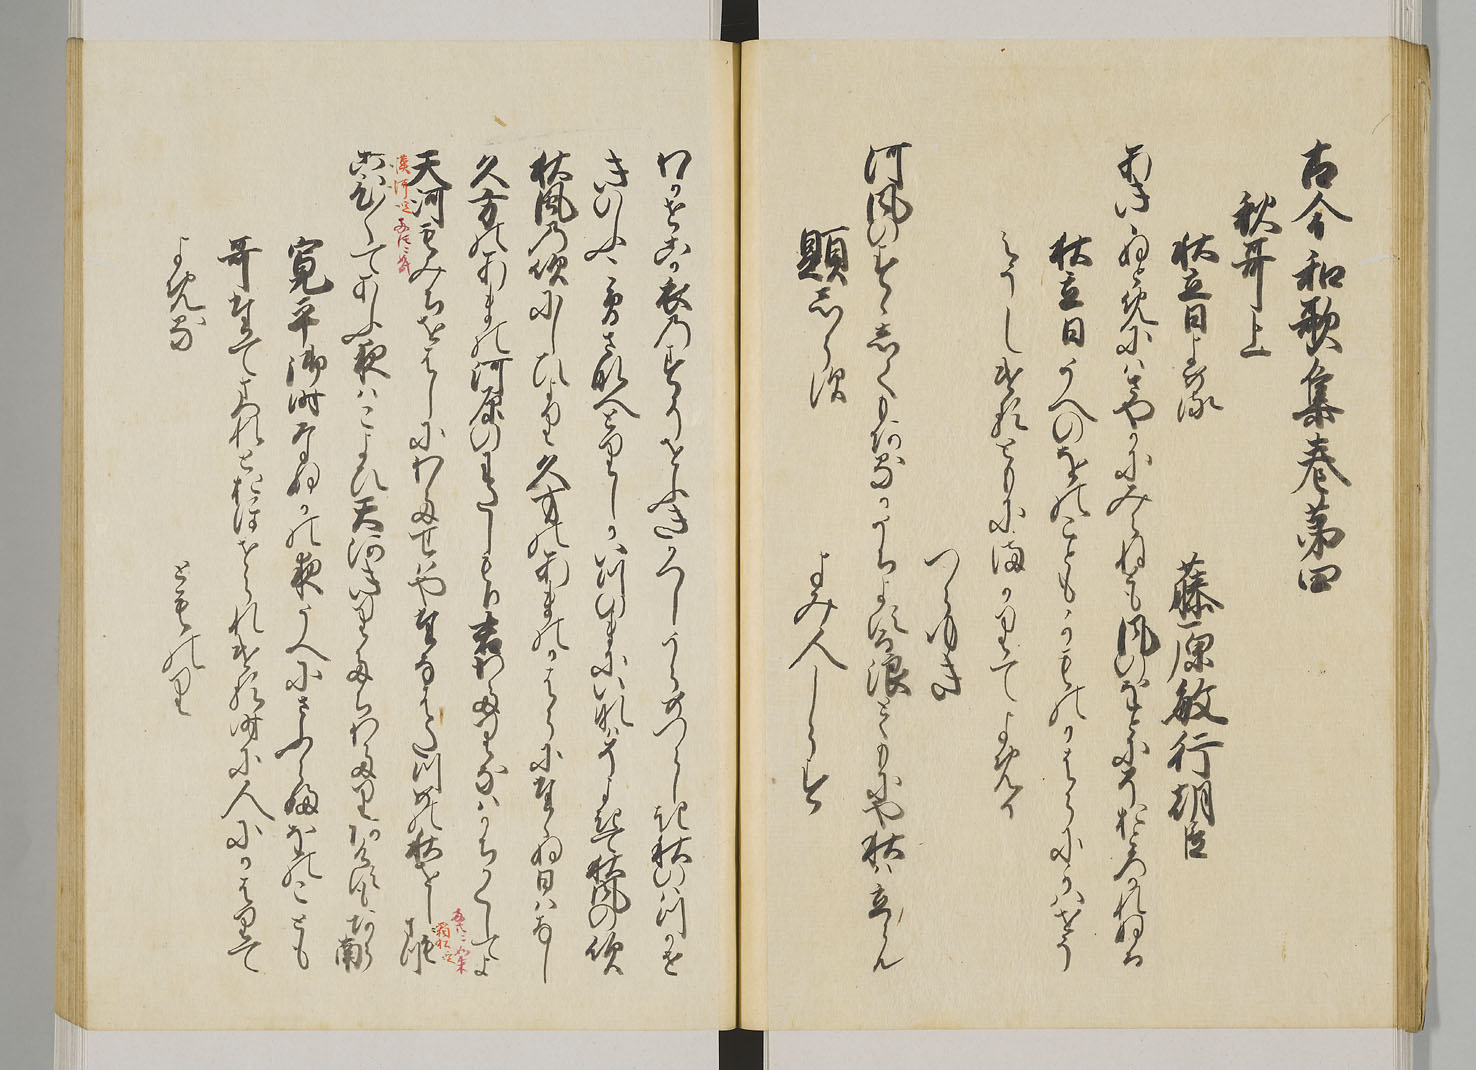 古今和歌集巻第四
秋哥上
秋立日よめる
藤原敏行朝臣
あきゝぬとめにはさやかにみえねとも風のをとにそおとろかれぬる
秋立日うへのをのこともかものかはらにかはせう
えうしけるともにまかりてよめる
つらゆき
河風のすゝしくもあるかうちよする浪とゝもにや秋は立らん
題しらす
よみ人しらす
わかせこか衣のすそをふきかへしうらめつらしき秋のはつかせ
きのふこそさなへとりしかいつのまにいなはそよきて秋風の吹
秋風の吹にしひより久方のあまのかはらにたゝぬ日はなし
久方のあまの河原のわたしもり君わたりなはかちかくしてよ
天河もみちをはしにわたせはやたなはたつめの秋をしもまつ
こひ〳〵てあふ夜はこよひ天河きりたちわたりあけすもあら南
寛平御時なぬかの夜うへにさふらふをのことも
哥たてまつれとおほせられける時に人にかはりて
よめる
とものり